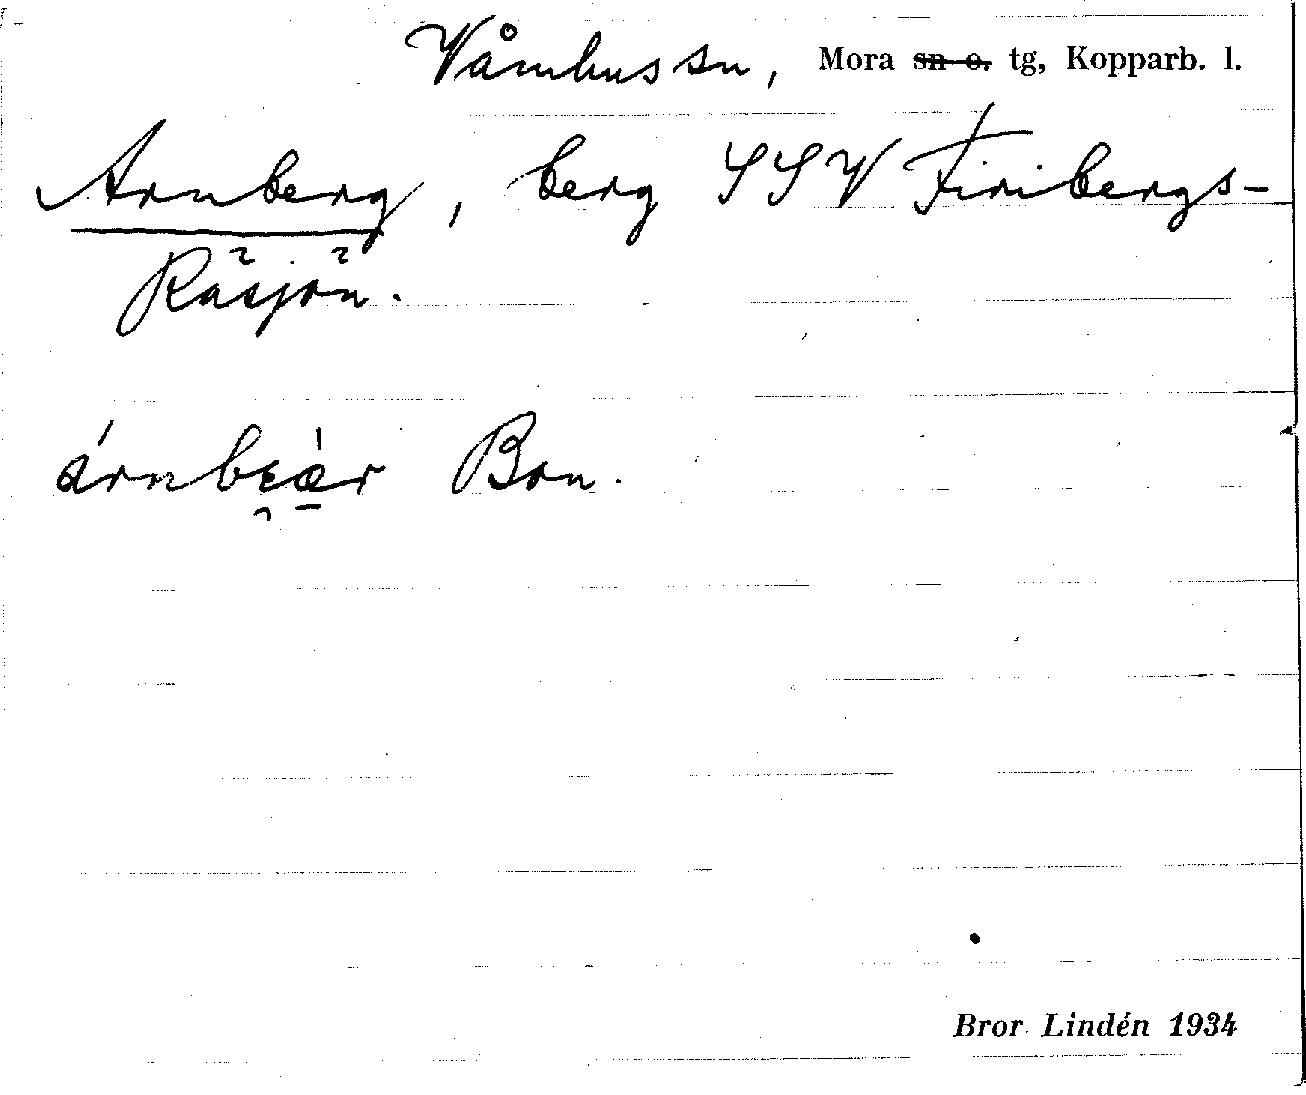 Våmhus sn, Mora sn o. tg, Kopparb. l.
Arnberg, berg SSV Firibergs-
Råsjön.
árnbɛ̯ær Bon.
Bror Lindén 1934